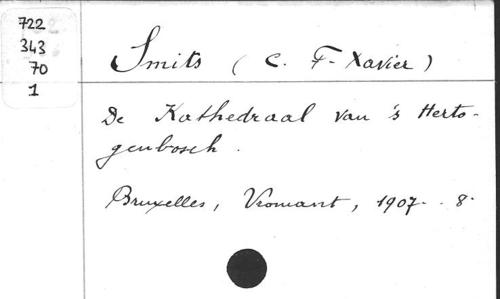 722
343
70
1
Smits (C. F-Xavier)
De Kathedraal van 's Herto-
genbosch.
Bruxelles, Vromant, 1907. 8.